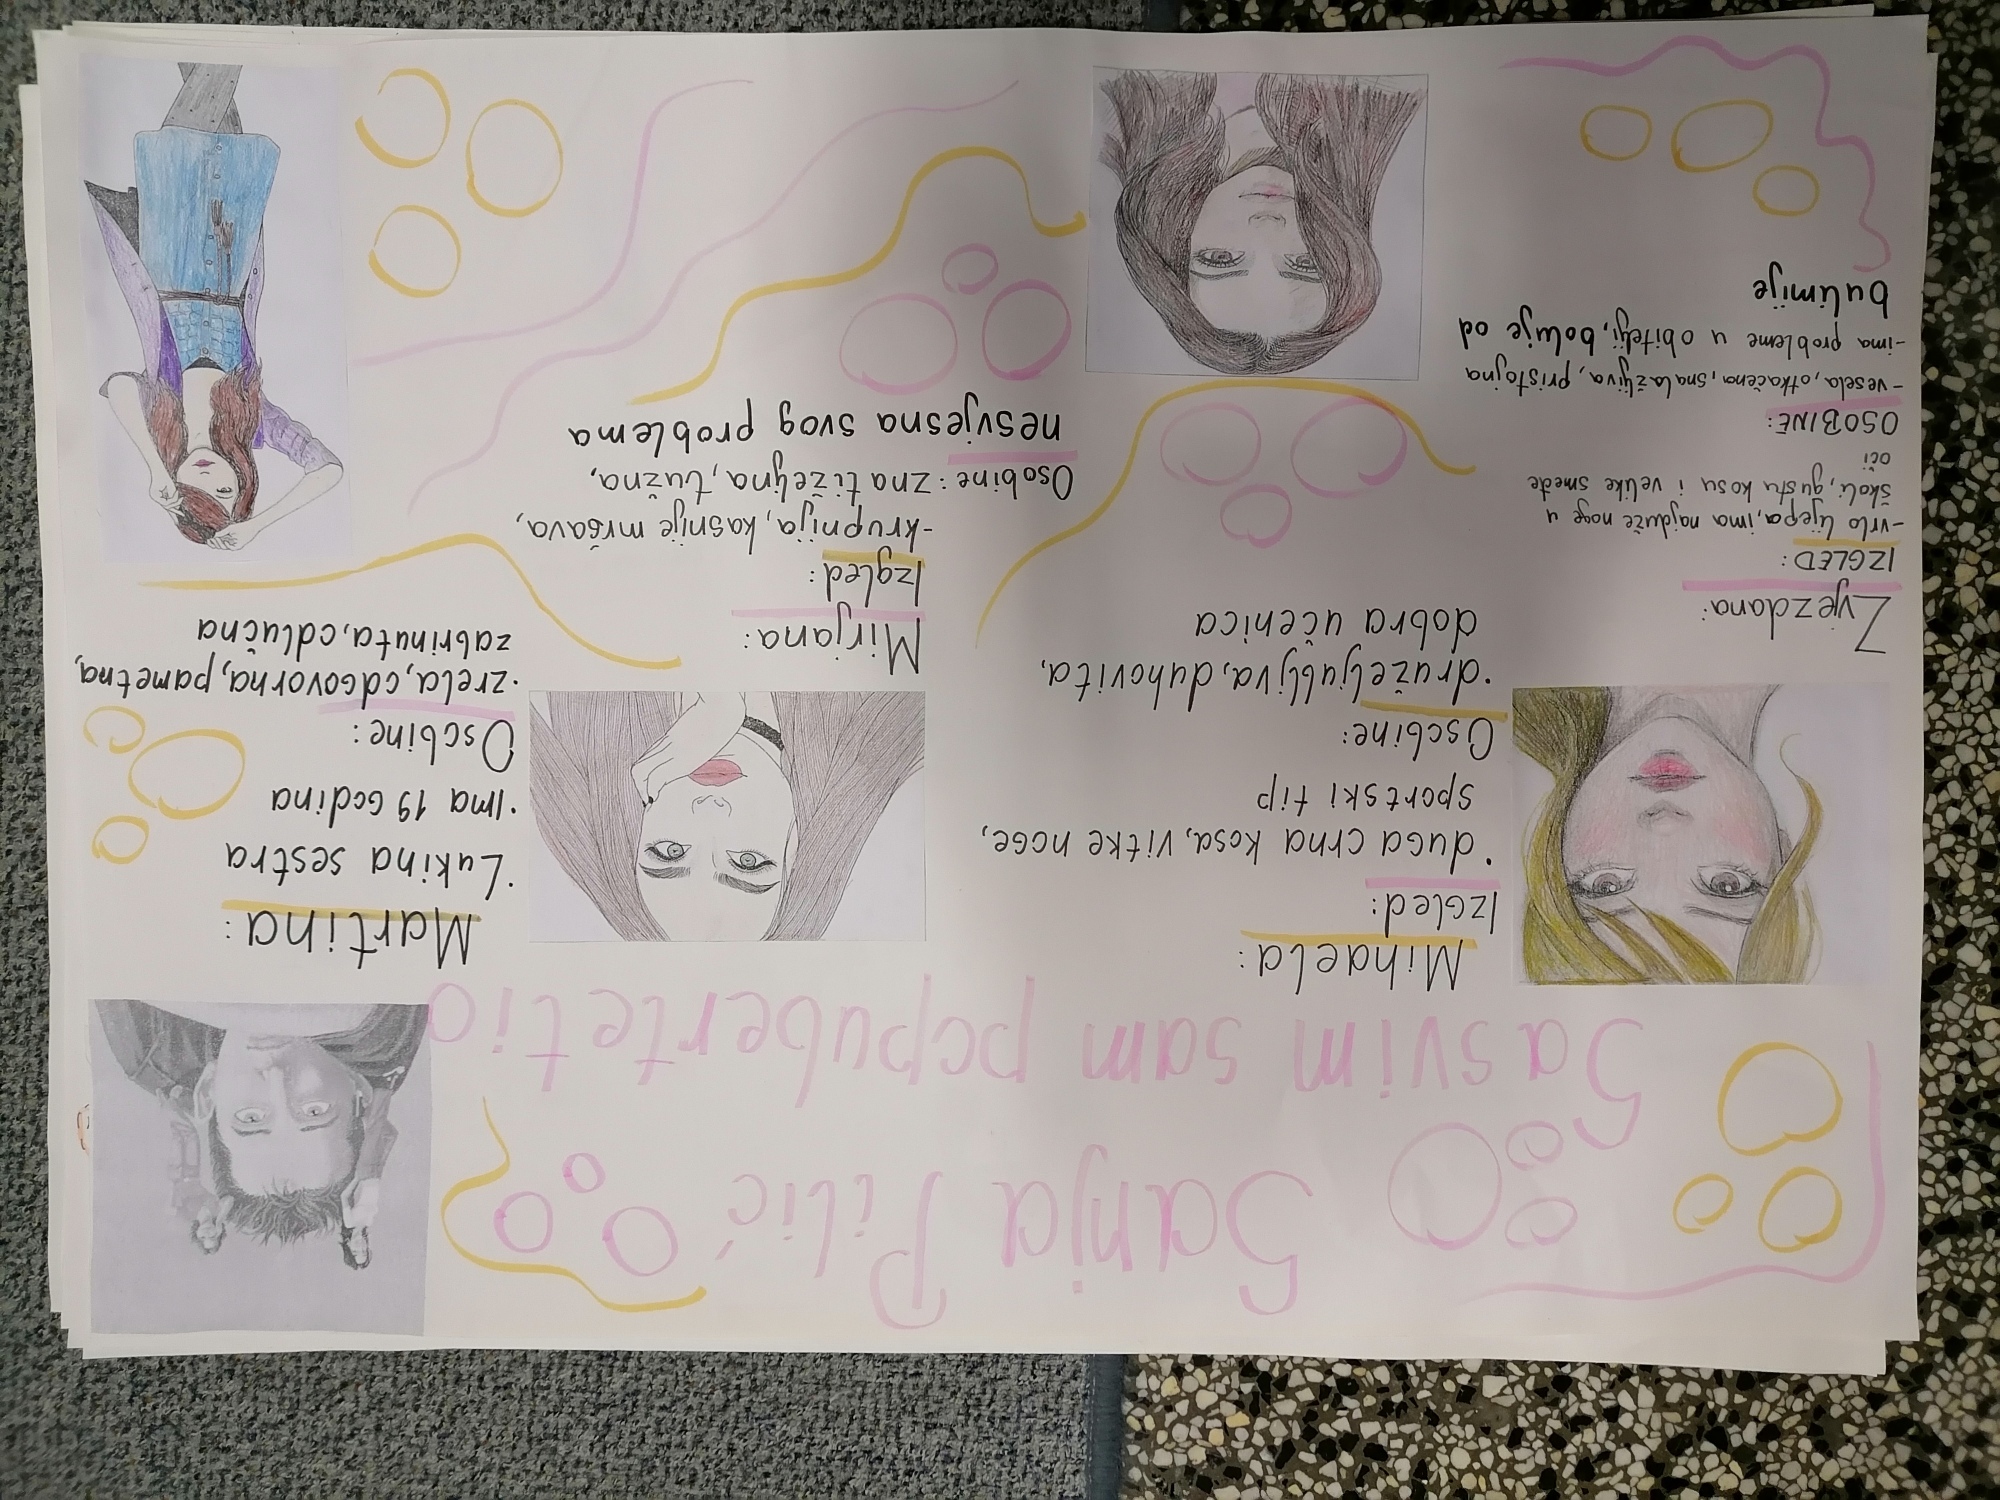 Sanja Pilić
Sasvim sam popubertetio
Mihaela:
Izgled:
•duga crna kosa, vitke noge,
sportski tip
Osobine:
•druželjubljiva, duhovita,
dobra učenica
Martina:
•Lukina sestra
•Ima 19 godina
Osobine:
•zrela, odgovorna, pametna,
zabrinuta, odlučna
Zvjezdana:
IZGLED:
-vrlo lijepa, ima najduže noge u
školi, gustu kosu i velike smeđe
oči
OSOBINE:
-vesela, otkačena, snalažljiva, pristojna
-ima probleme u obitelji, boluje od
bulimije
Mirjana:
Izgled:
-krupnija, kasnije mršava,
Osobine: znatiželjna, tužna,
nesvjesna svog problema